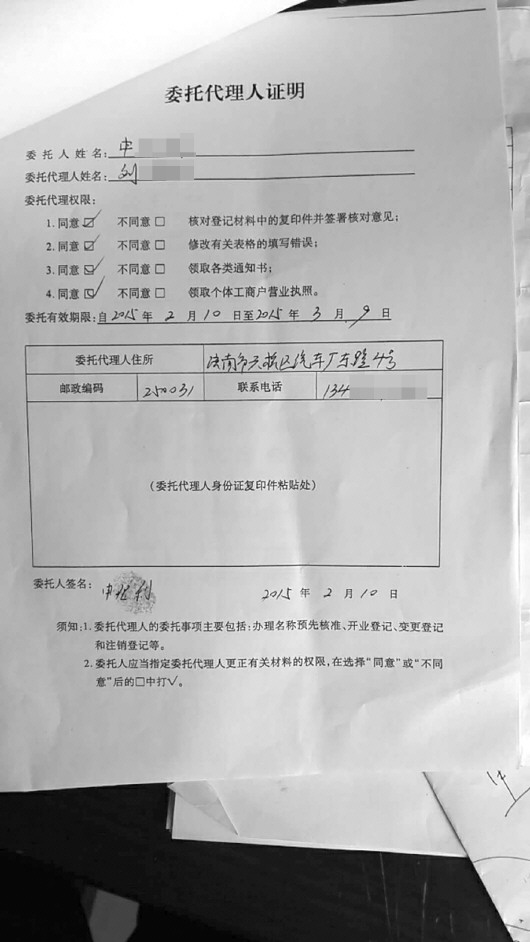 委托代理人证明
委托人姓名:申
委托代理人姓名:刘
委托代理权限:
1.同意☑ 不同意□ 核对登记材料中的复印件并签署核对意见;
2.同意☑ 不同意□ 修改有关表格的填写错误;
3.同意☑ 不同意□ 领取各类通知书;
4.同意☑ 不同意□ 领取个体工商户营业执照。
委托有效期限:自2015年2月10日至2015年3月9日
委托代理人住所 济南市天桥区汽车厂东路4号
邮政编码 250031 联系电话 134
(委托代理人身份证复印件粘贴处)
委托人签名:申 利 2015年2月10日
须知:1.委托代理人的委托事项主要包括:办理名称预先核准、开业登记、变更登记
和注销登记等。
2.委托人应当指定委托代理人更正有关材料的权限,在选择“同意”或“不同
意”后的□中打√。